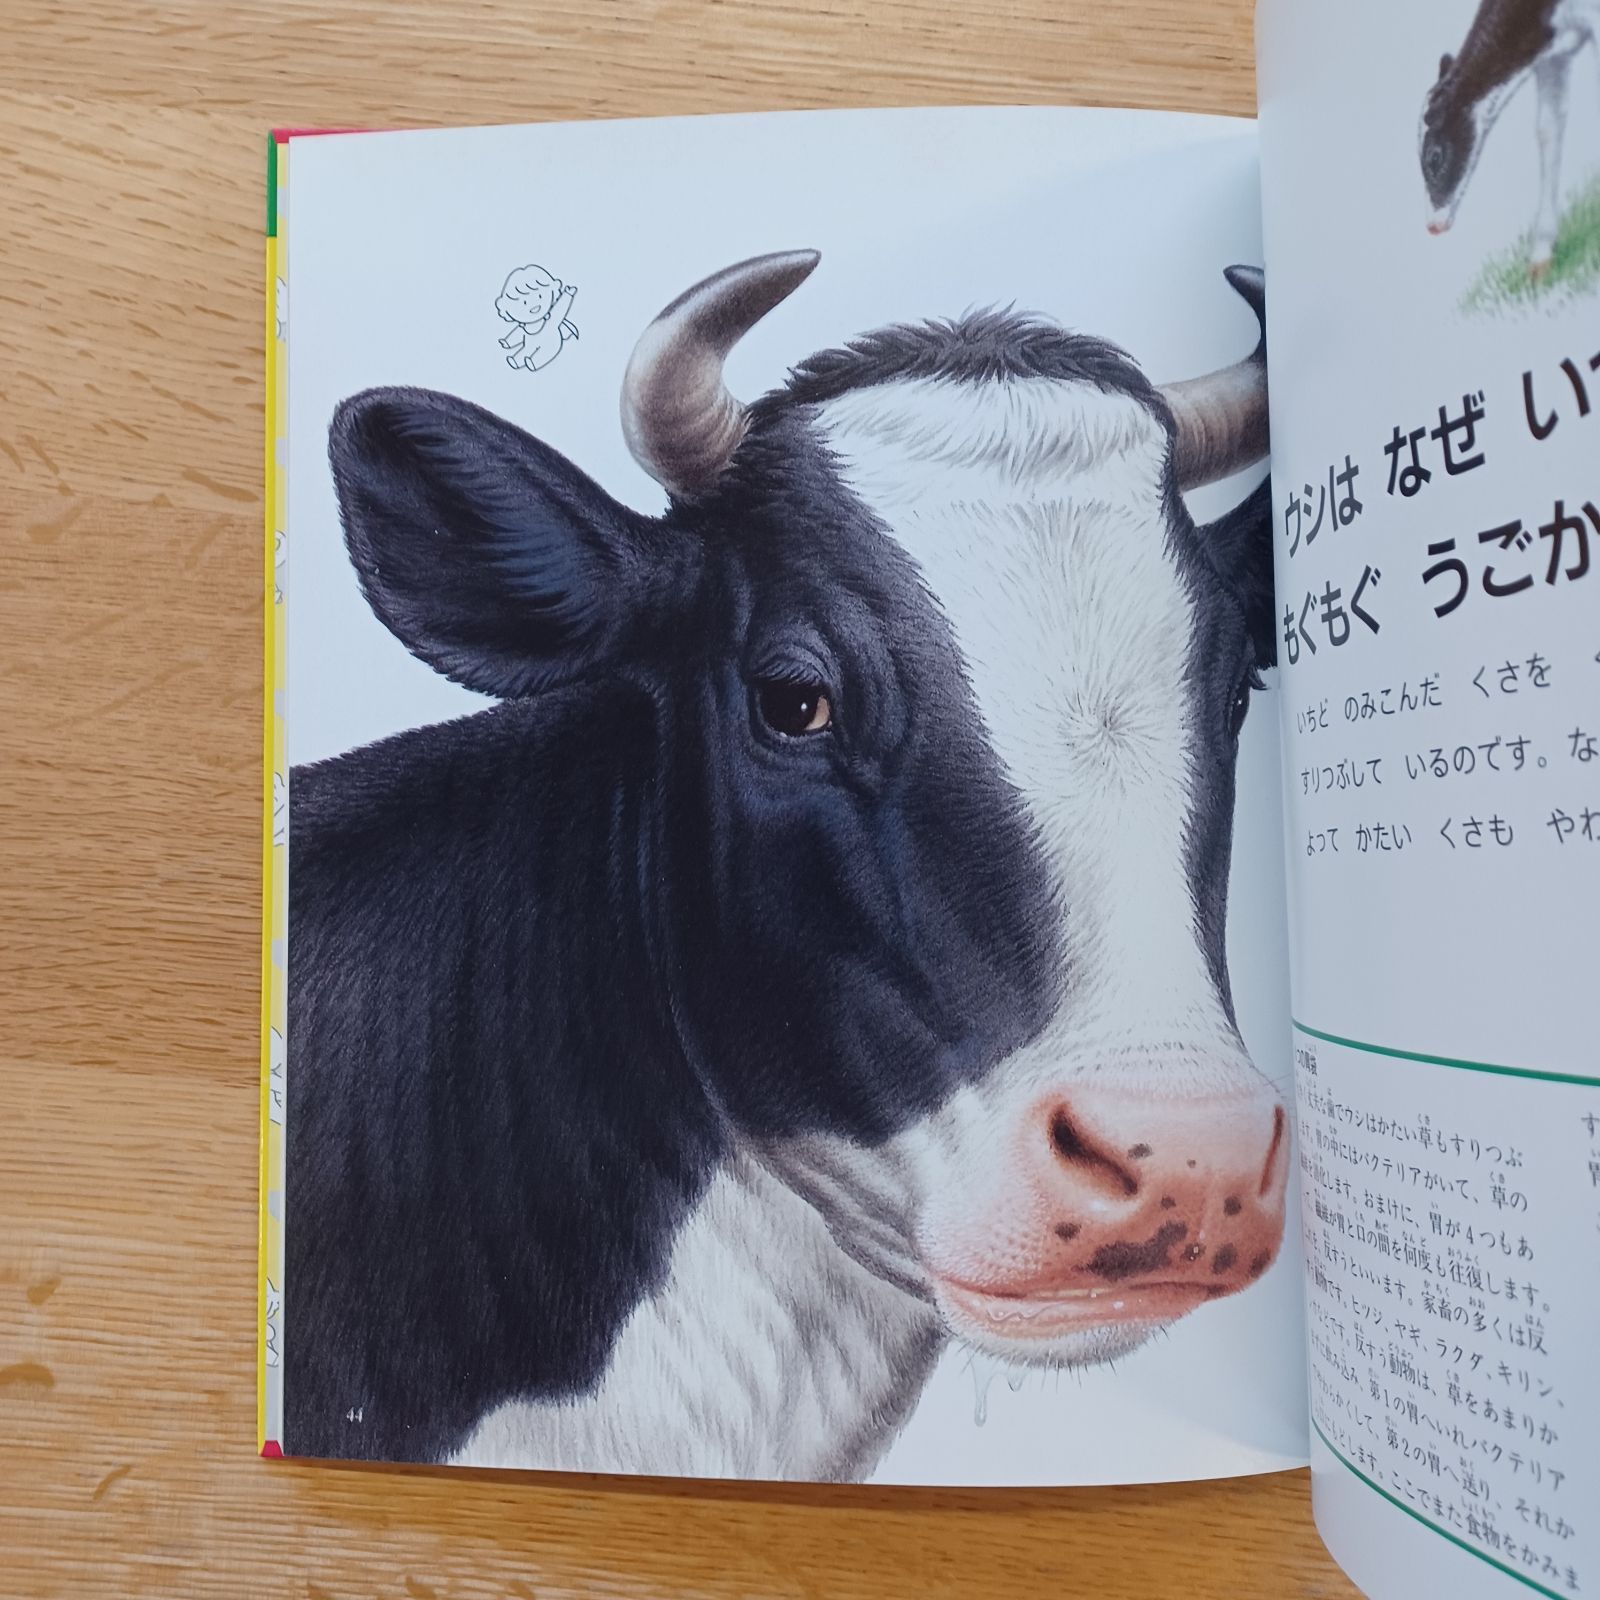 ウシは なぜ
もぐもぐ うごか
いちど のみこんだ くさを
すりつぶして いるのです。な
よって かたい くさも やわ
つの胃袋
丈夫な歯でウシはかたい草もすりつぶ
ます。胃の中にはバクテリアがいて、草の
消化します。おまけに、胃が4つもあ
繊維が胃と口の間を何度も往復します。
反すうといいます。家畜の多くは反
動物です。ヒツジ、ヤギ、ラクダ、キリン、
などです。反すう動物は、草をあまりか
まずに飲み込み、第1の胃へいれバクテリア
でやわらかくして、第2の胃へ送り、それか
にもどします。ここでまた食物をかみま
す
胃
44